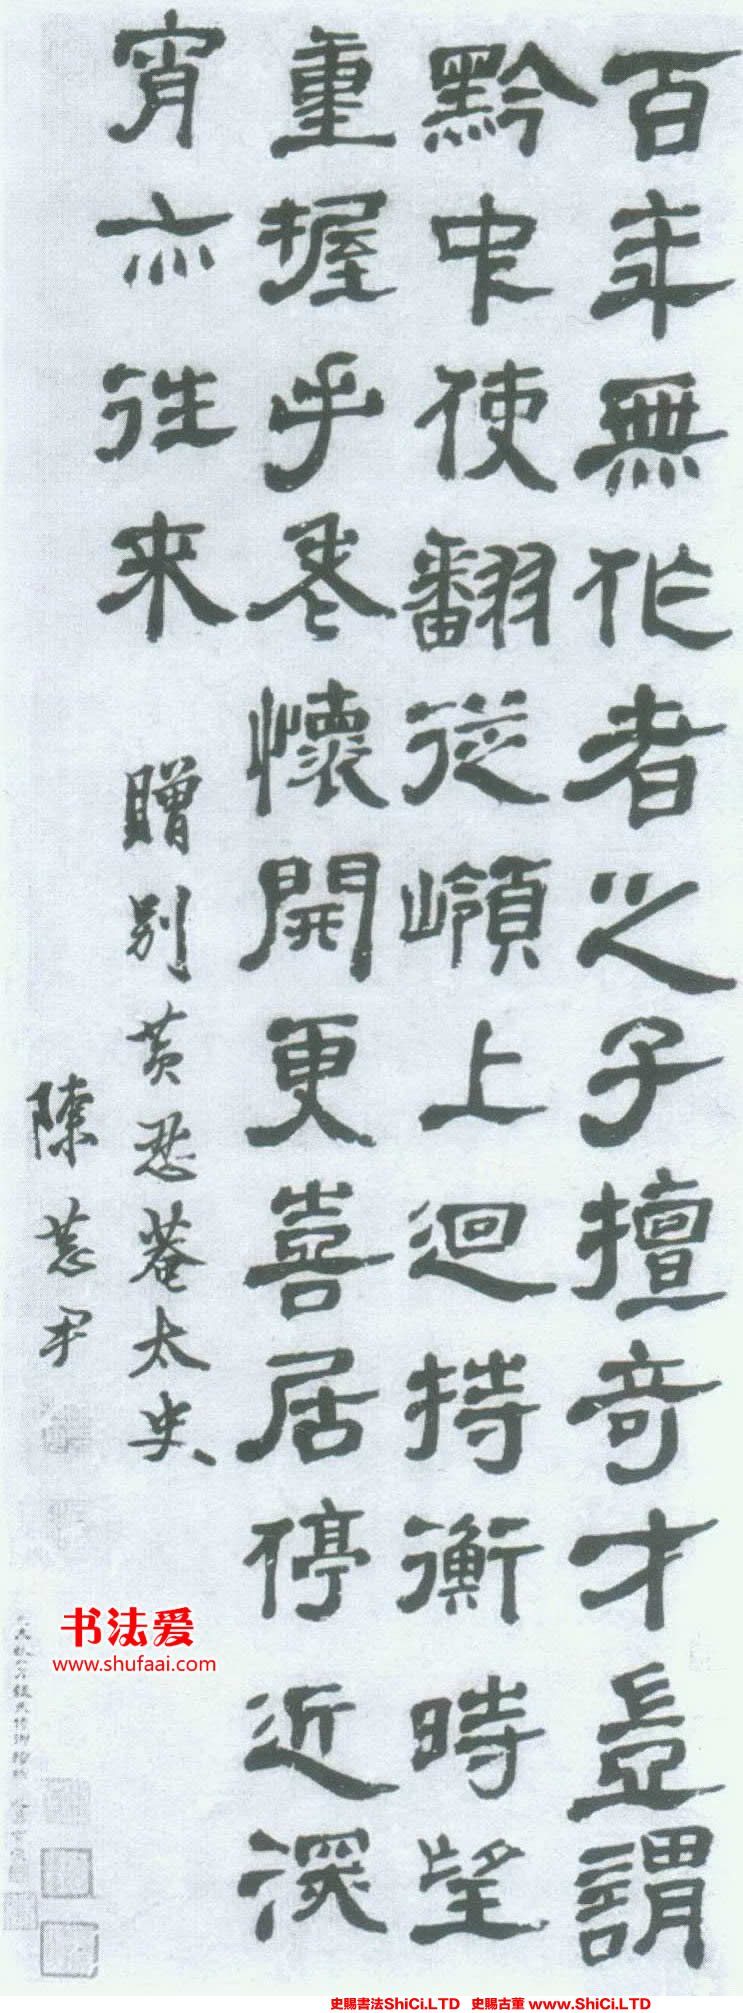 百年無作者之子擅奇才豈謂
黔中使翻從嶺上迴持衡時望
重握手老懷開更喜居停近深
宵亦往来
贈别黄忍菴太史
陳恭尹
书法爱
www.shufaai.com
史賜書法ShiCi.LTD 史賜古董 www.ShiCi.LTD